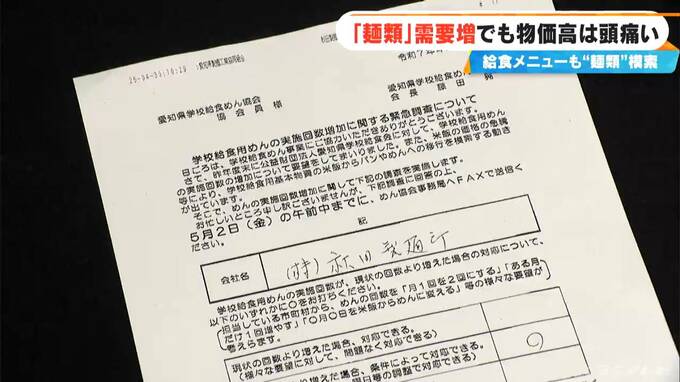 「麺類」需要増でも物価高は頭痛い
給食メニューも“麺類”模索
令和7年
愛知県学校給食めん協会
協会員 様
愛知県学校給食めん
会長 原田
学校給食用めんの実施回数増加に関する緊急調査について
日ごろは、学校給食めん事業にご協力いただきありがとうございます。
さて、昨年度末に公益財団法人愛知県学校給食会に対して、学校給食用めん
の実施回数の増加について要望をしてまいりました。また、米飯の価格の急騰
等により、学校給食用基本物資の米飯からパンやめんへの移行を模索する動き
が出ています。
そこで、めんの実施回数増加に関して下記の調査を実施します。
お忙しいところ申し訳ございませんが、下記調査に回答の上、
5月2日（金）の午前中までに、めん協会事務局へFAXで送信く
ださい。
記
会社名
学校給食用めんの実施回数が、現状の回数より増えた場合の対応について、
以下のいずれかに○をお打ちください。
（担当している市町村から、めんの回数を「月1回を2回にする」「ある月
だけ1回増やす」「○月○日を米飯からめんに変える」等の様々な要望が
考えます。
現状の回数より増えた場合、対応できる。
（様々な要望に対して、問題なく対応できる）
○
増えた場合、条件によって対応できる。